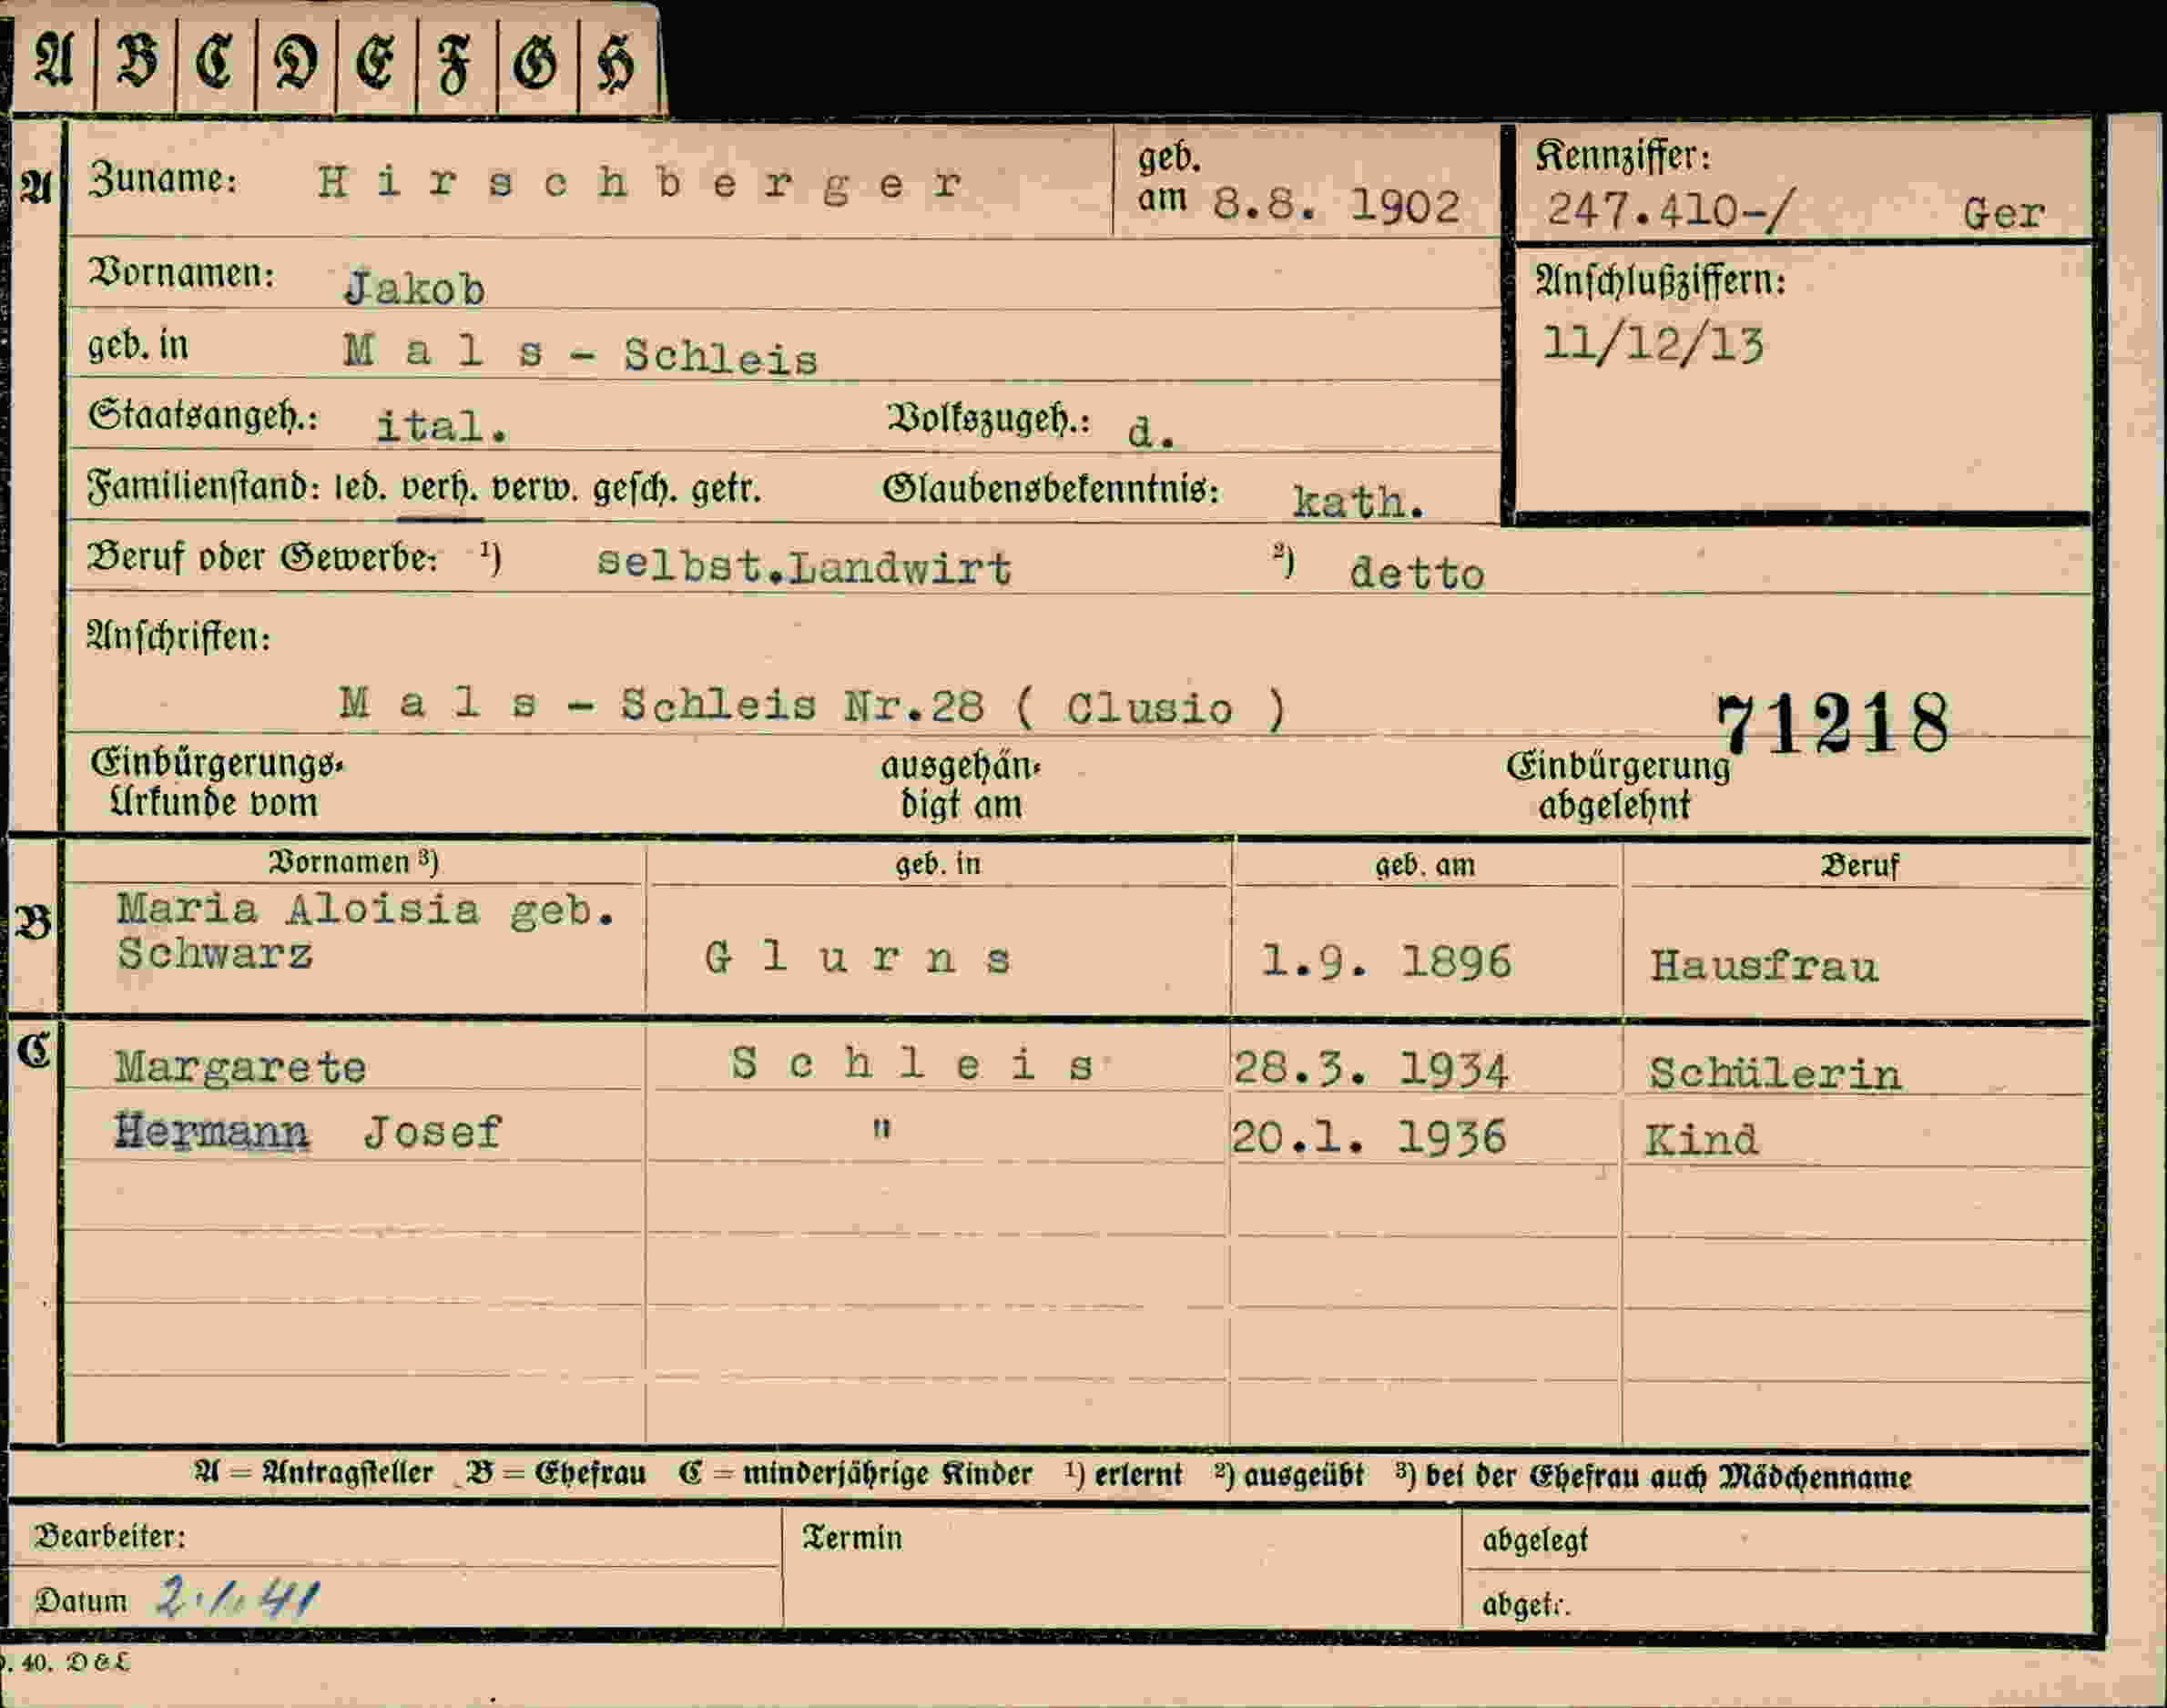 A B C D E F G H
A Zuname: Hirschberger geb. am 8.8. 1902 Kennziffer: 247.410-/ Ger
Vornamen: Jakob Anschlußziffern:
geb. in Mals - Schleis 11/12/13
Staatsangeh.: ital. Volkszugeh.: d.
Familienstand: led. verh. verw. gesch. getr. Glaubensbekenntnis: kath.
Beruf oder Gewerbe: ¹) selbst.Landwirt ²) detto
Anschriften:
Mals - Schleis Nr.28 ( Clusio ) 71218
Einbürgerungs- ausgehän- Einbürgerung
Urkunde vom digt am abgelehnt
Vornamen ³) geb. in geb. am Beruf
B Maria Aloisia geb.
Schwarz Glurns 1.9. 1896 Hausfrau
C Margarete Schleis 28.3. 1934 Schülerin
Hermann Josef " 20.1. 1936 Kind
A = Antragsteller B = Ehefrau C = minderjährige Kinder ¹) erlernt ²) ausgeübt ³) bei der Ehefrau auch Mädchenname
Bearbeiter: Termin abgelegt
Datum 2.1.41 abgetr.
. 40. D & L